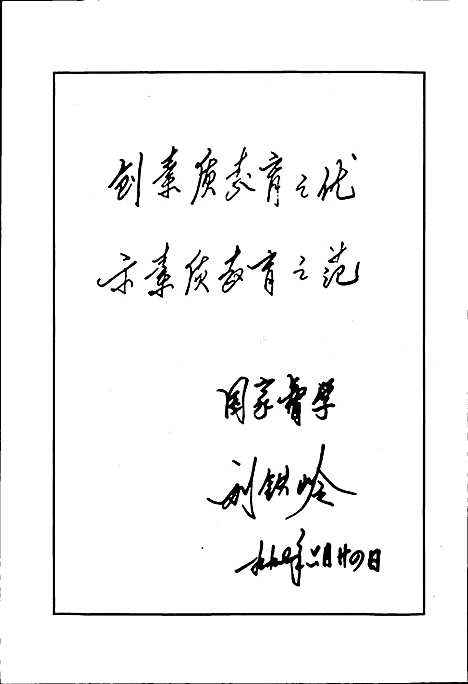 创素质教育之优
示素质教育之范
国家督学
刘铁岭
六月廿四日